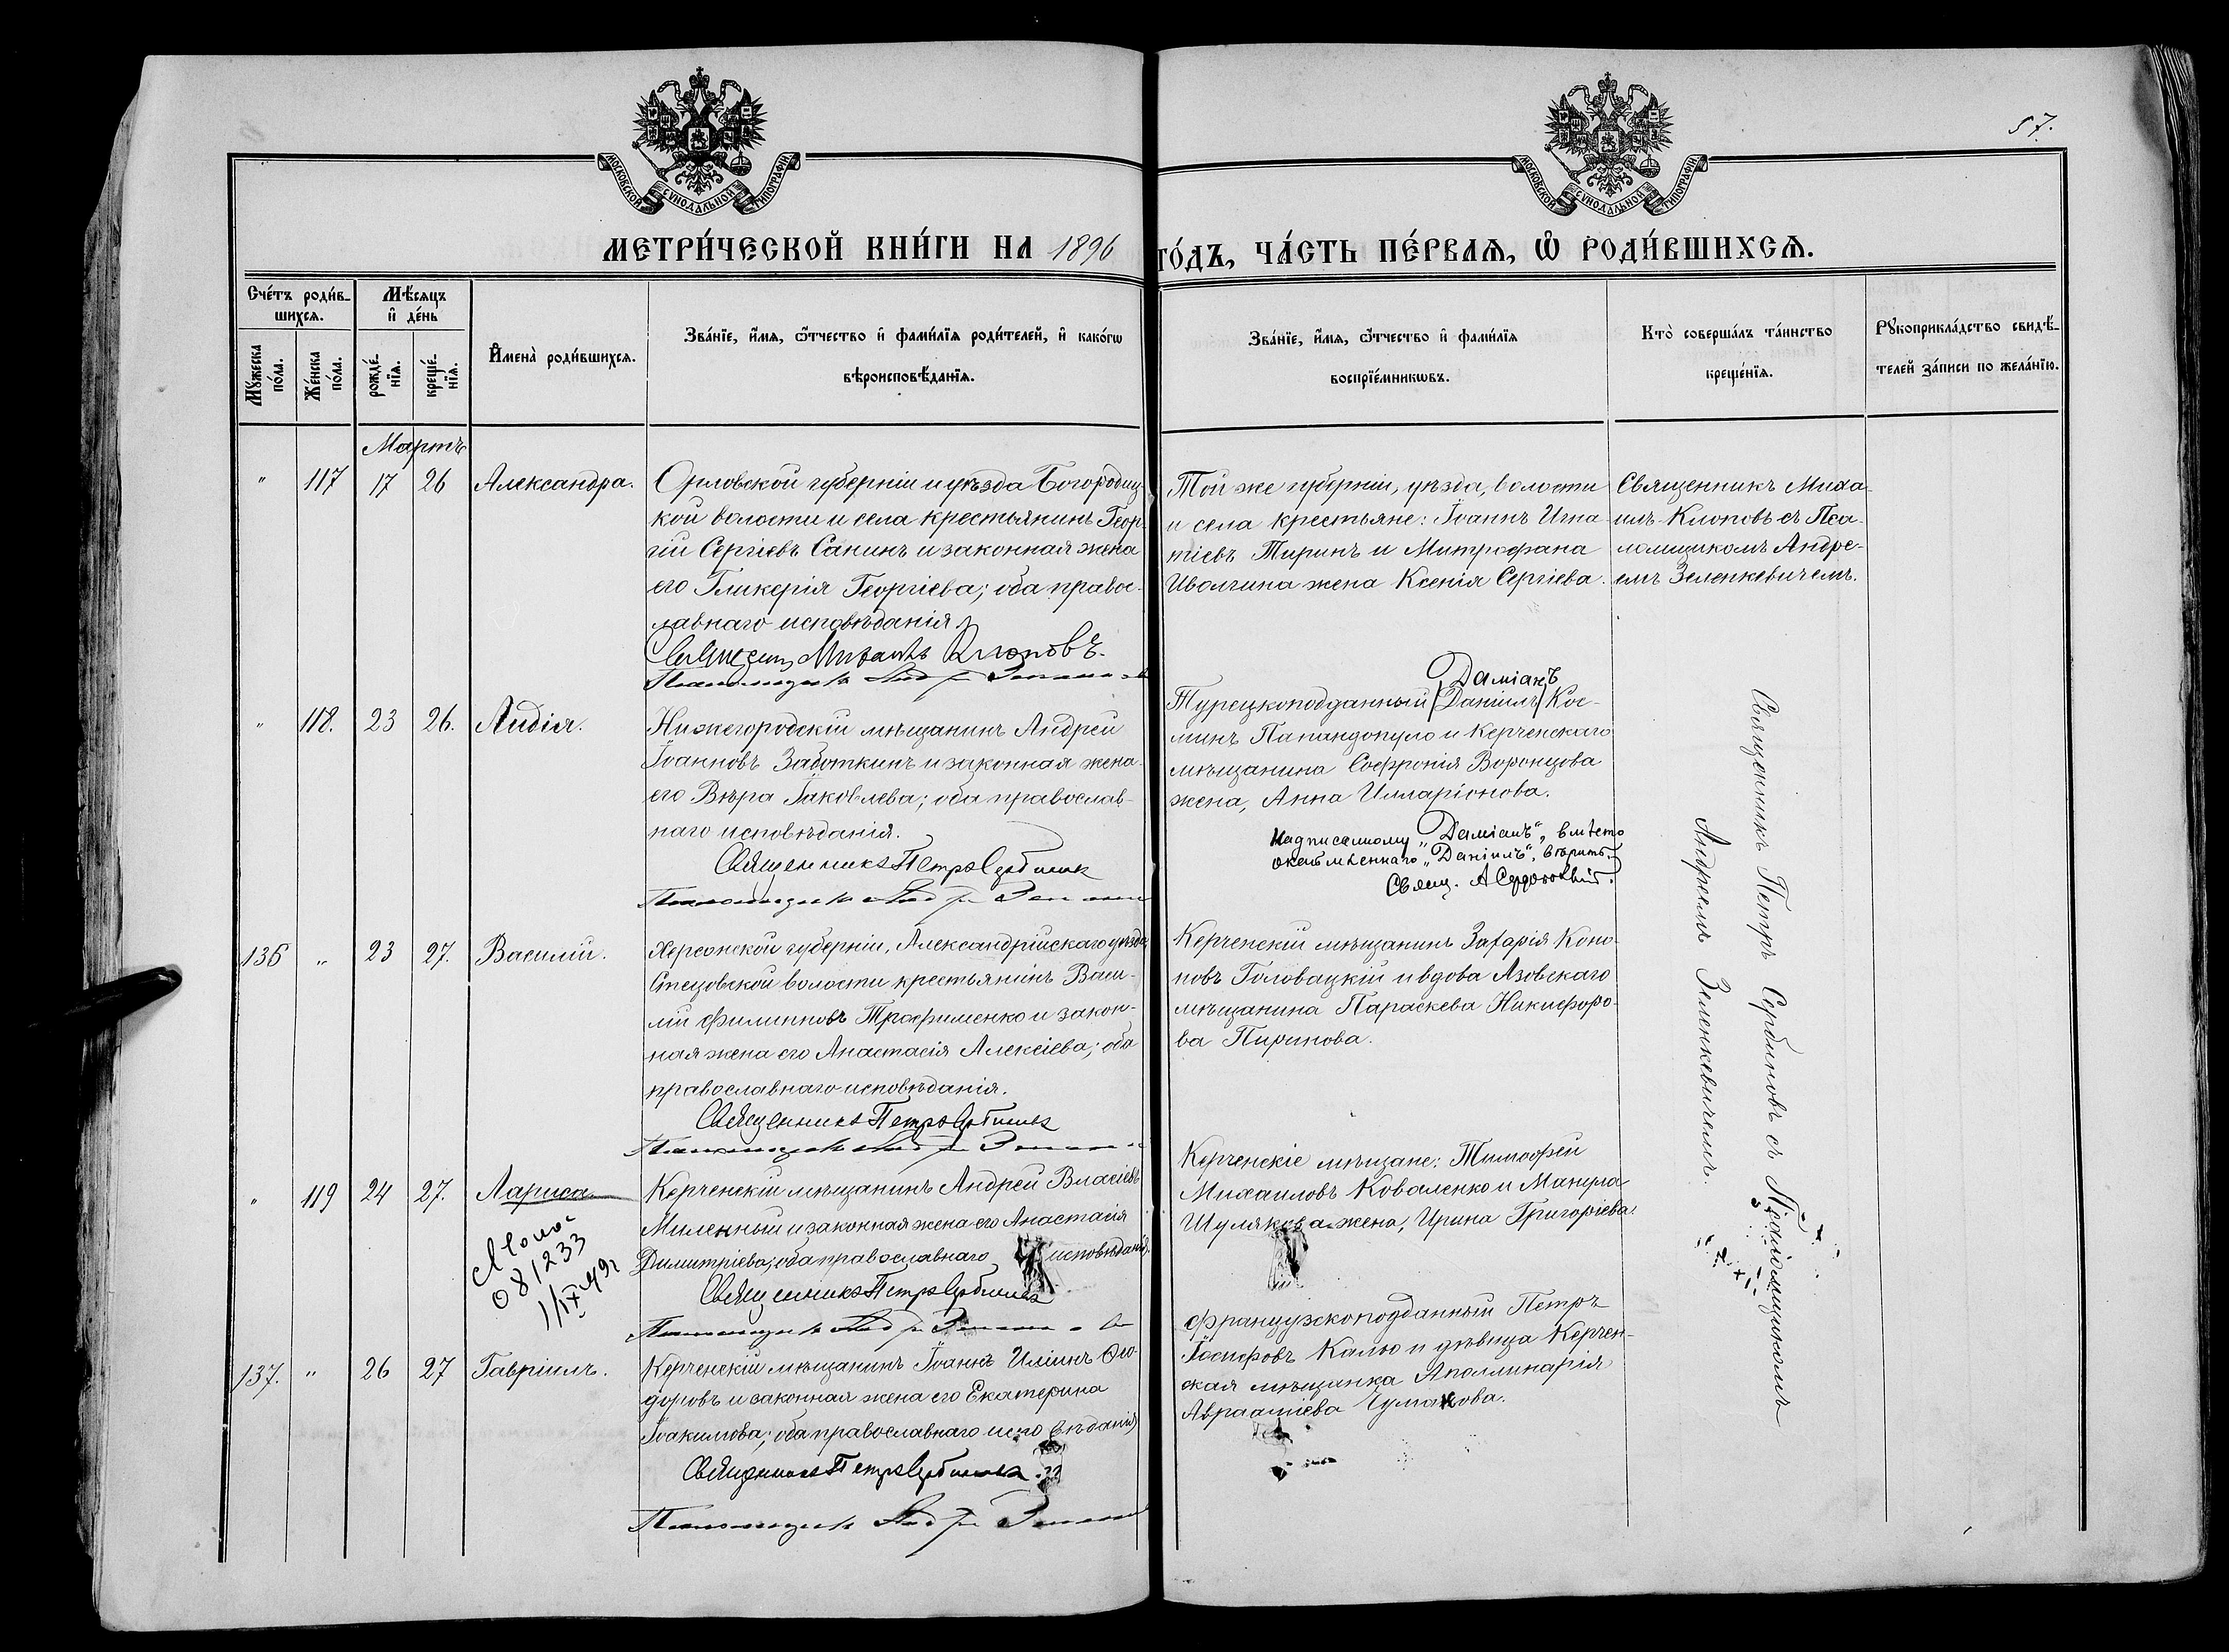 57.
МОСКОВСКОЙ СУНОДАЛЬНОЙ ТИПОГРАФІИ
МОСКОВСКОЙ СУНОДАЛЬНОЙ ТИПОГРАФІИ
МЕТРИ́ЧЕСКОЙ КНИ́ГИ НА 1896 ГО́ДЪ, ЧА́СТЬ ПЕ́РВАѦ, Ѡ҆ РОДИ́ВШИХСѦ.
Сче́тъ роди́в-
шихсѧ.
Мꙋжеска по́ла.
Же́нска по́ла.
Мѣ́сѧцъ
и҆ де́нь
рожде́-
нїѧ.
креще́-
нїѧ.
И҆мена̀ роди́вшихсѧ.
Зва́нїе, и҆́мѧ, ѻ҆́тчество и҆ фами́лїѧ роди́телей, и҆ како́гѡ
вѣроисповѣ́данїѧ.
Зва́нїе, и҆́мѧ, ѻ҆́тчество и҆ фами́лїѧ
воспрїе́мникѡвъ.
Кто̀ соверша́лъ та́инство
креще́нїѧ.
Рꙋкоприкла́дство свидѣ́-
телей за́писи по жела́нїю.
Мартъ
" 117 17 26 Александра.
Орловской губерніи и уѣзда Богородиц-
кой волости и села крестьянинъ Геор-
гій Сергіевъ Санинъ и законная жена
его Гликерія Георгіева; оба правос-
лавнаго исповѣданія.
Священ. Михаилъ Клоповъ.
Той же губерніи, уѣзда, волости
и села крестьяне: Іоаннъ Игна-
тіевъ Тиринъ и Митрофана
Иволгина жена Ксенія Сергіева.
Священникъ Миха-
илъ Клоповъ съ Пса-
ломщикомъ Андре-
емъ Зеленкевичемъ.
" 118. 23 26. Лидія.
Нижегородскій мѣщанинъ Андрей
Іоанновъ Заботкинъ и законная жена
его Вѣра Іаковлева; оба православ-
наго исповѣданія.
Священникъ Петръ Сербиновъ
Даміанъ
Турецкоподданный (Даніилъ) Кос-
минъ Папандопуло и Керченскаго
мѣщанина Софронія Воронцова
жена, Анна Илларіонова.
Надписанному „Даміанъ", вмѣсто
„Даніилъ", вѣрить.
Свящ. А
Священникъ Петръ Сербиновъ съ Псаломщикомъ
Андреемъ Зеленкевичемъ.
136 " 23 27. Василій.
Херсонской губерніи, Александрійскаго уѣзда
Стецовской волости крестьянинъ Васи-
лій Филипповъ Трофименко и закон-
ная жена его Анастасія Алексіева; оба
православнаго исповѣданія.
Священникъ Петръ Сербиновъ
Керченскій мѣщанинъ Захарія Коно-
новъ Головацкій и вдова Азовскаго
мѣщанина Параскева Никифоро-
ва Пиринова.
" 119 24 27. Лариса.
081233
1/IX 49г
Керченскій мѣщанинъ Андрей Власіевъ
Миленный и законная жена его Анастасія
Димитріева; оба православнаго исповѣданія.
Священникъ Петръ Сербиновъ
Керченскіе мѣщане: Тимофей
Михаиловъ Коваленко и Мануила
Шулякова жена, Ирина Григоріева.
137. " 26 27 Гавріилъ.
Керченскій мѣщанинъ Іоаннъ Иліинъ Ѳео-
доровъ и законная жена его Екатерина
Іоакимова; оба православнаго исповѣданія
Священникъ Петръ Сербиновъ
Французскоподданный Петръ
Іосифовъ Калю и дѣвица Керчен-
ская мѣщанка Аполлинарія
Авраамiева Чумакова.